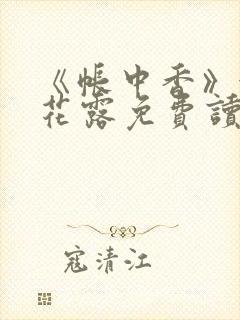 《帳中香》
花露免費讀
寇清江